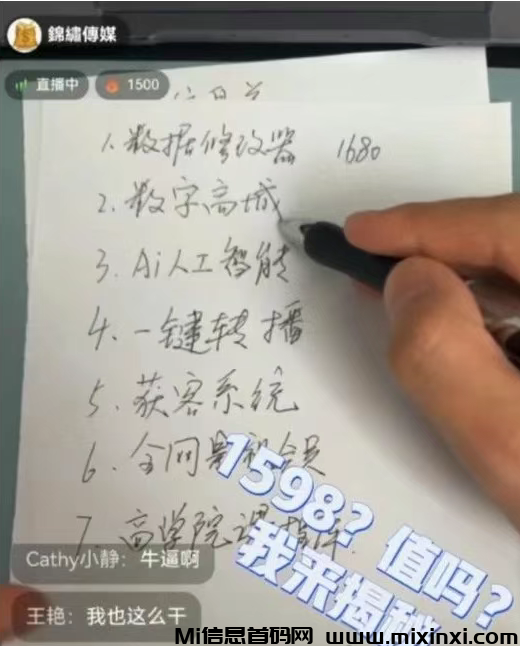 錦繡傳媒
直播中 1500
1.数据修改器 1680
2.数字商城
3.Ai人工智能
4.一键转播
5.获客系统
6.全网影视会员
7.商学院课
1598?值吗?
我来揭秘
Cathy小静：牛逼啊
王艳：我也这么干
Mi信息首码网 www.mixinxi.com